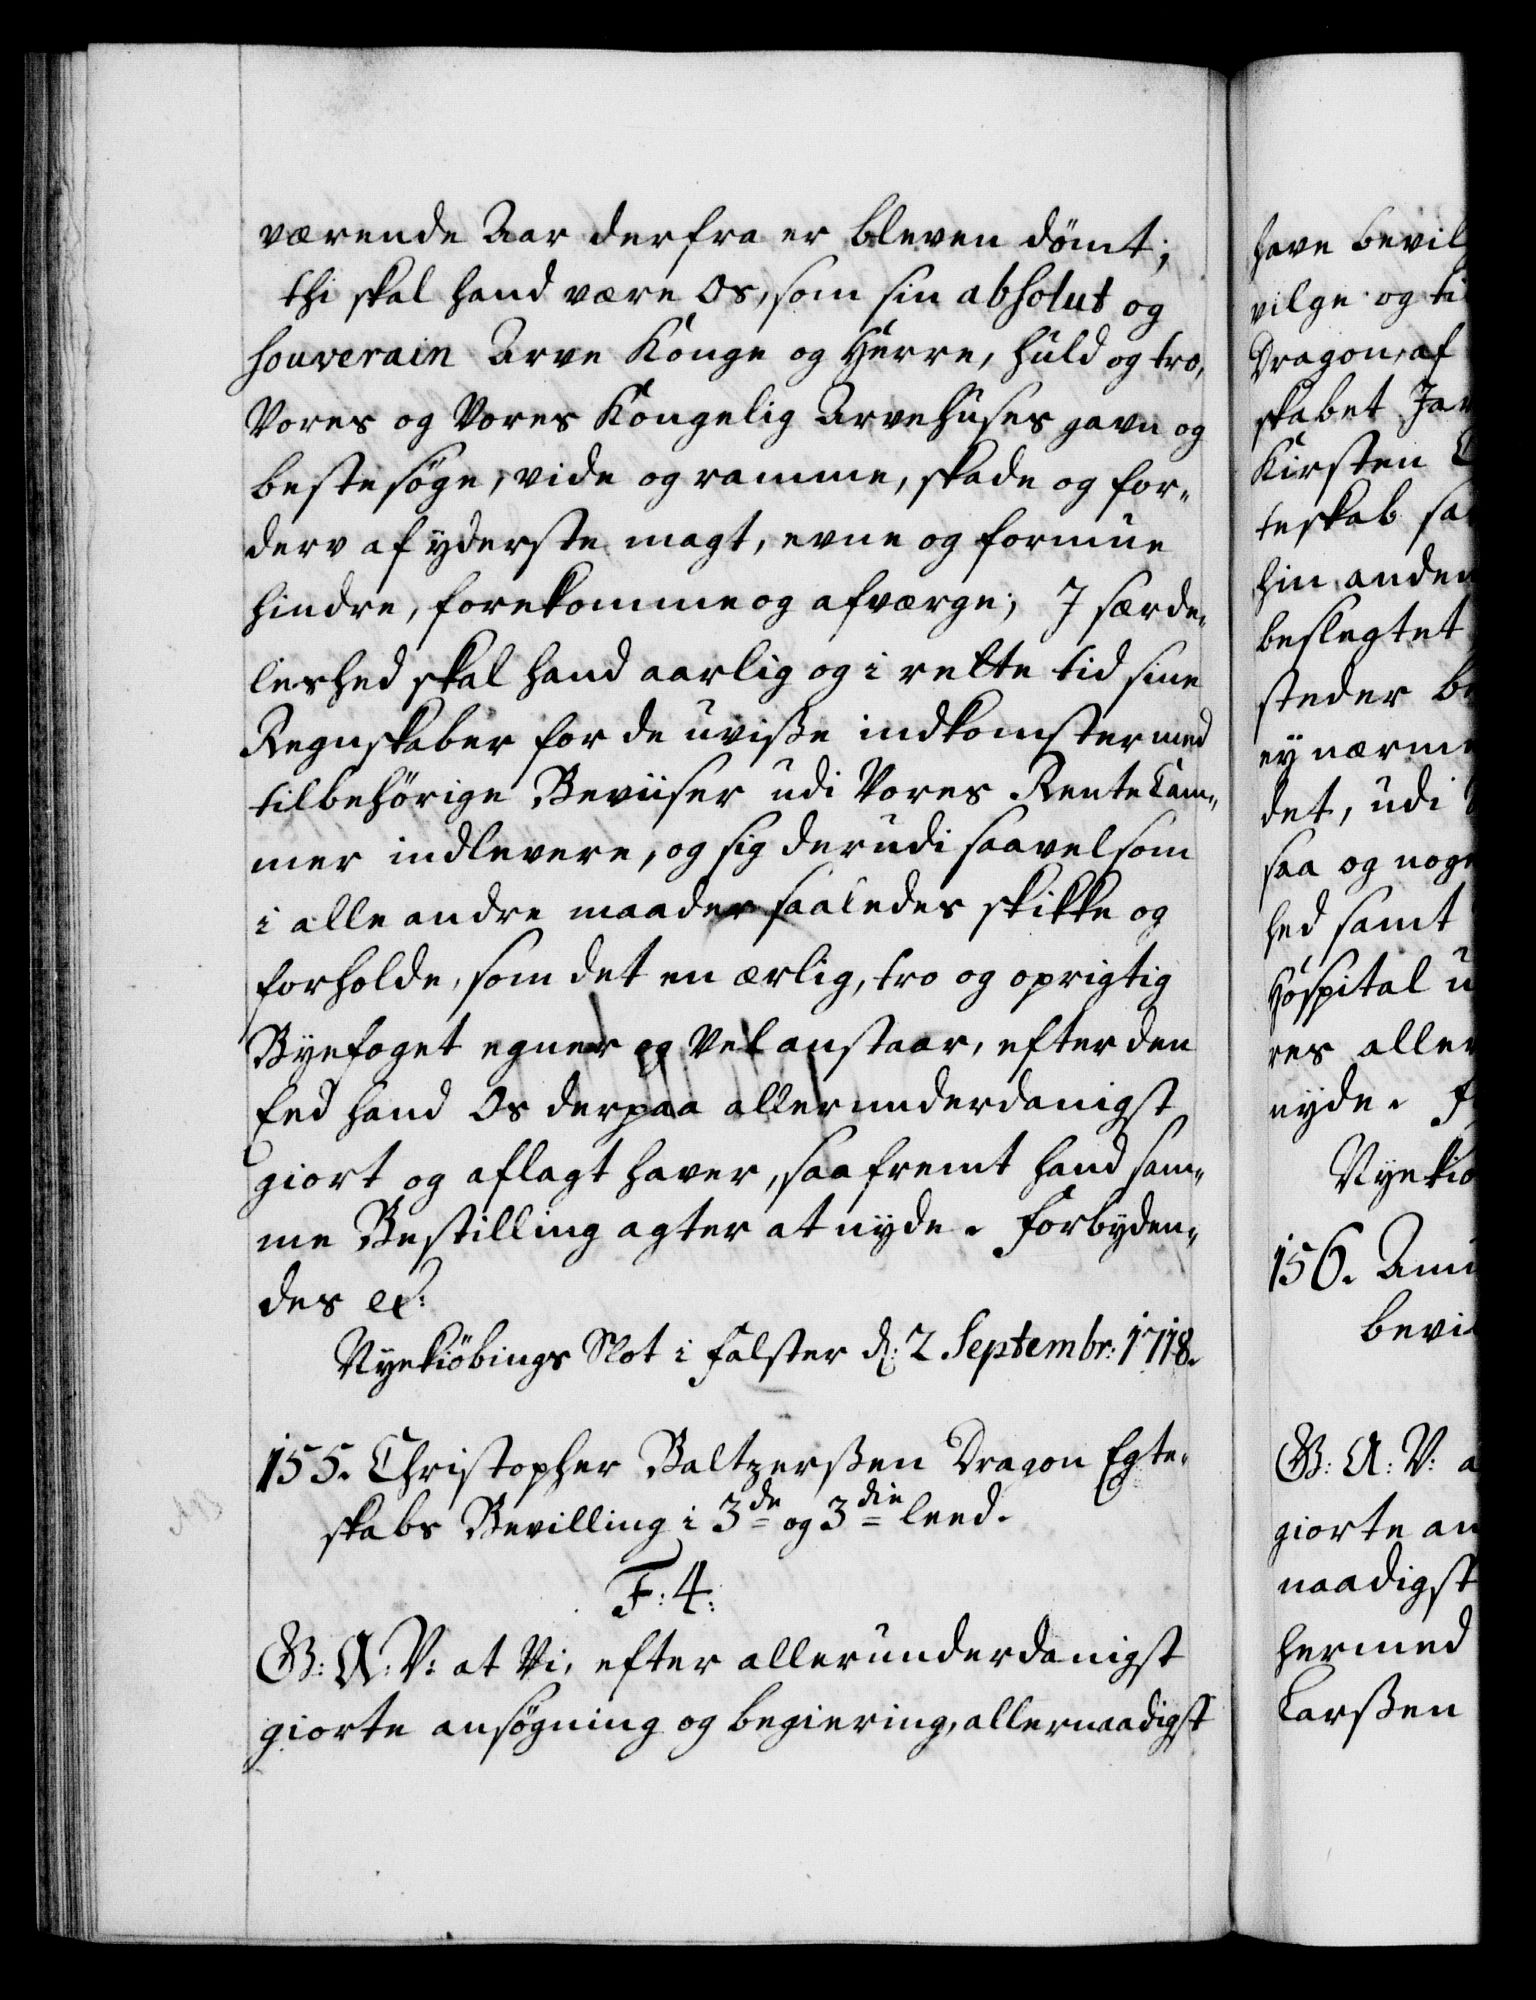 værende Aar derfra er bleven dömt;
thi skal hand være Os, som sin absolut og
souverain Arve Konge og Herre, huld og tro,
Vores og Vores Kongelig Arvehuses gavn og
beste söge, vide og ramme, skade og for„
derv af yderste magt, evne og formue
hindre, forekomme og afværge; J særde„
leshed skal hand aarlig og i rette tid sine
Regnskaber for de uvisse indkomster med
tilbehörige Beviiser udi Vores Rente Cam„
mer indlevere, og sig derudi saavelsom
i alle andre maader saaledes skikke og
forholde, som det en ærlig, tro og oprigtig
Byefoget egner og vel anstaar, efter den
Eed hand Os derpaa allerunderdanigst
giort og aflagt haver, saafremt hand sam„
me Bestilling agter at nyde. Forbyden„
des etc:
Nyekiöbings Slot i Falster d: 2 Septembr: 1718.
155. Christopher Baltzerssen Dragon Egte„
skabs Bevilling i 3de og 3die leed.
F: 4:
G: A: V: at Vi, efter allerunderdanigst
giorte ansögning og begiering, allernaadigst
have bevil
vilge og ti
Dragon, af
skabet Ja
Kirsten
teskab sa
hin anden
beslegtet
steder be
ey nærme
det, udi
saa og noge
hed samt
Hospital u
res aller
nyde. F
Nyekiö
156. Amu
bevi
G: A: V: a
giorte an
naadigst
hermed
Larssen